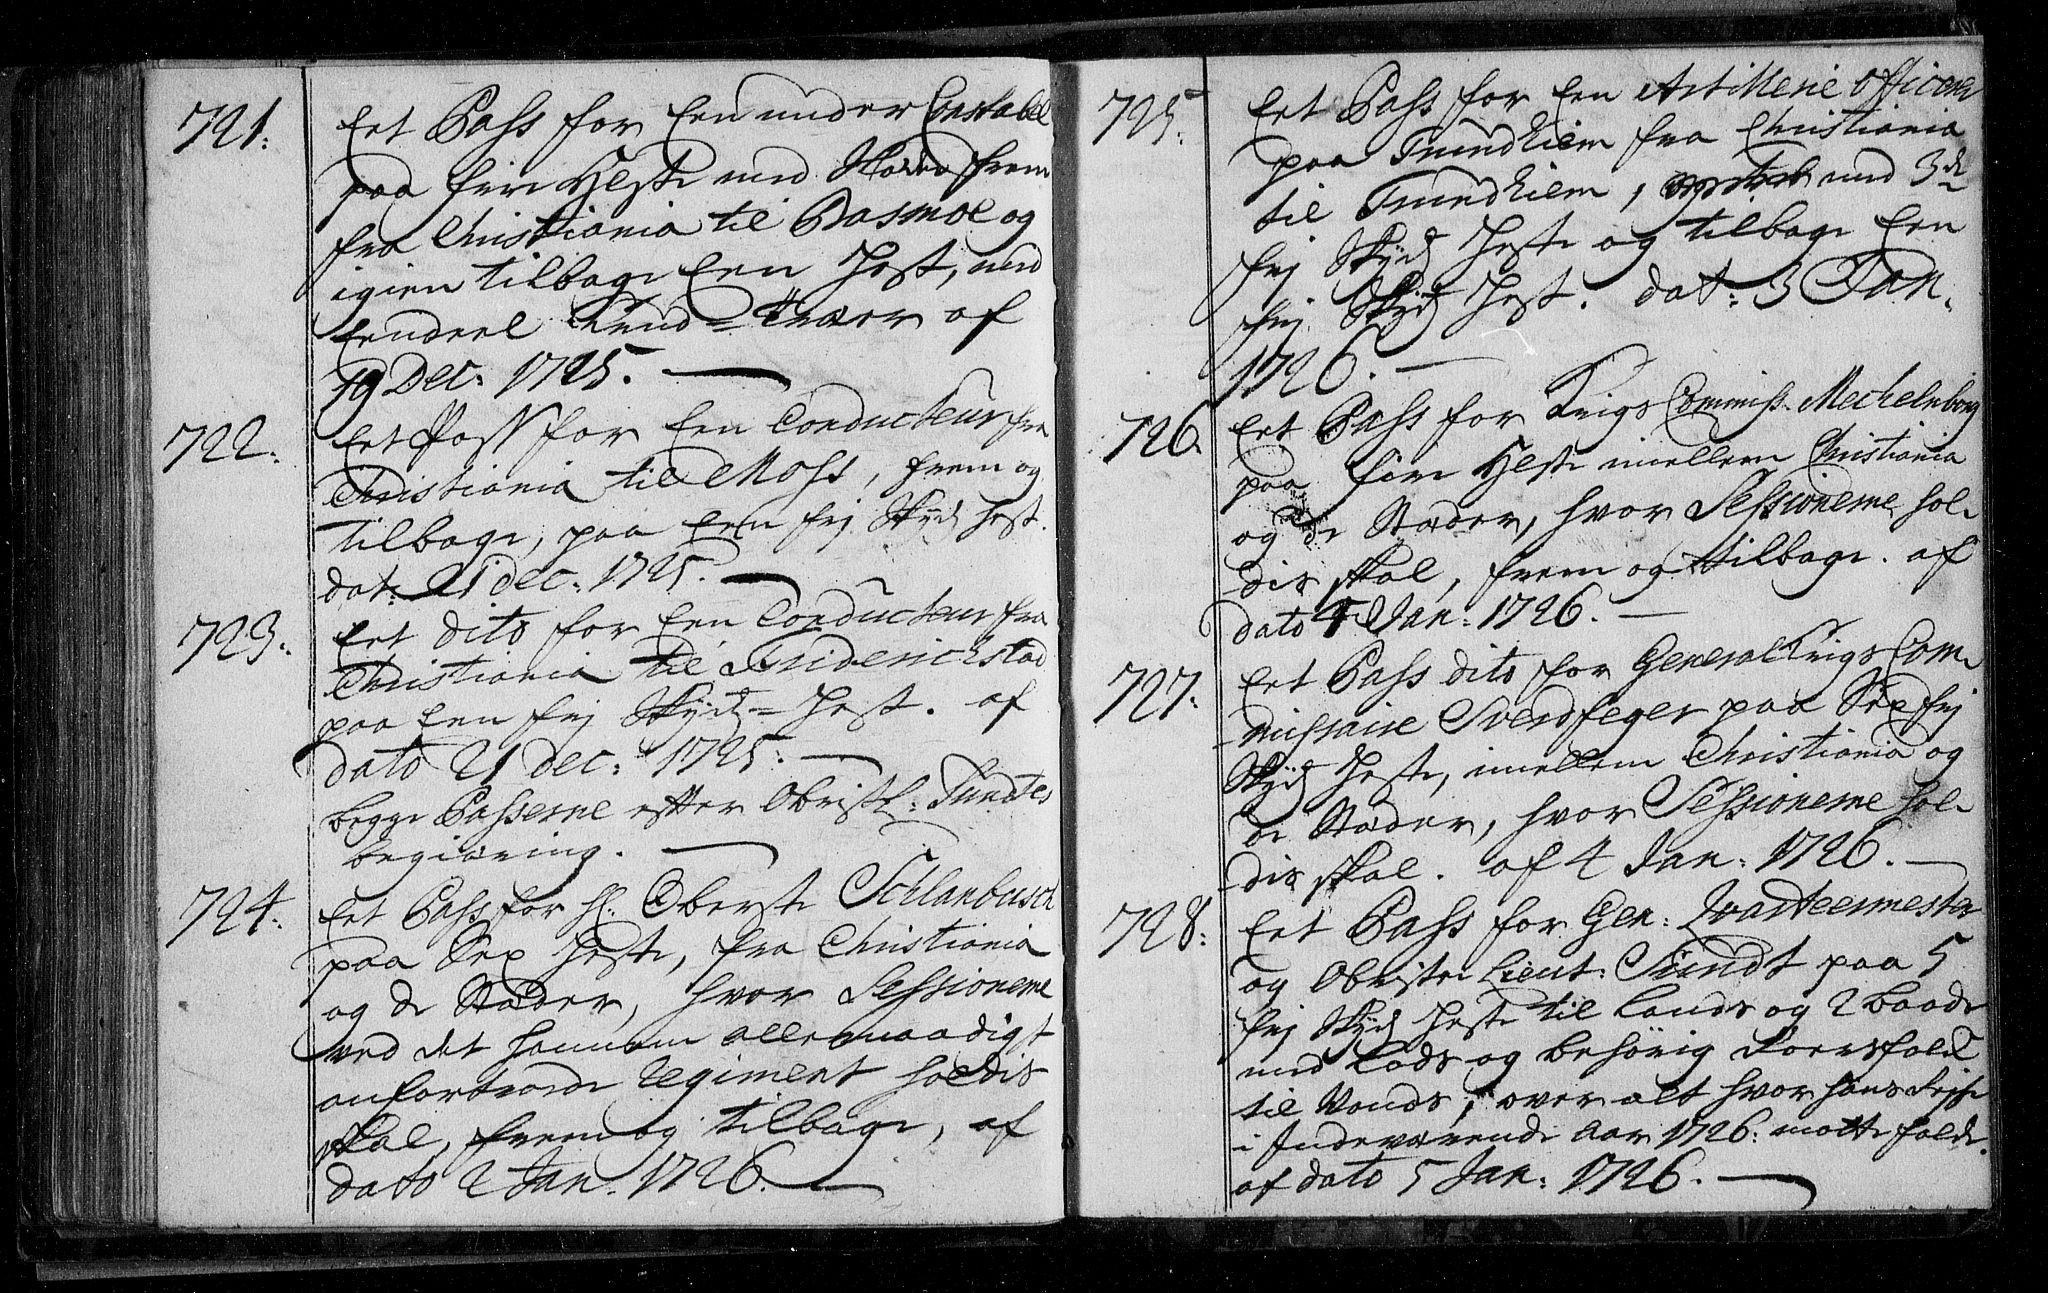 721. Eet Pass for Een under Constabel
paa fire Heste med frem
fra Christiania til Basmoe og
igien tilbage Een Hest, med
Eendeel af
19 Dec: 1725.
722. Eet Pass for Een Conducteur fra
Christiania til Moss, frem og
tilbage, paa Een frj Skyds Hest.
dat: 21 dec: 1725.
723. Eet dito for Een Conducteur fra
Christiania til Friderichstad
paa Een frj Skyds-Hest. af
dato 21 dec: 1725:
begge Passerne efter Obristl:
begiering.
724. Eet Pass for Hr. Oberste Schlanbusch
paa Sex Heste, fra Christiania
og de Stæder, hvor Sessionerne
ved det hannem allernaadigst
anfortroede Regiment holdis
skal, frem og tilbage, af
dato 2 Jan: 1726.
725. Eet Pass for Een Artillerie Officerer
paa Trundhiem fra Christiania
til Trundhiem, med 3de
frj Skyds Heste og tilbage Een
frj Skyds Hest. dat: 3 Jan.
1726.
726. Eet Pass for Krigs Commiss. Mechelnborg
paa fire Heste imellem Christiania
og de Stæder, hvor Sessionerne hol-
dis skal, frem og tilbage. af
dato 4 Jan: 1726.
727. Eet Pass dito for General Krigs Com-
missaire Sverdfeger paa Sex frj
Skyds Heste, imellem Christiania og
de Stæder, hvor Sessionerne hol-
dis skal. af 4 Jan: 1726.
728. Eet Pass for Gen: Qvarteermester
og Obriste Lieut: Sundt paa 5
frj Skyds Heste til Lands og 2 Baade
med Lods og behörig Roersfolk
til Vands, over alt hvor hans Rejse
i Indeværende Aar 1726: motte falde.
af dato 5 Jan: 1726.